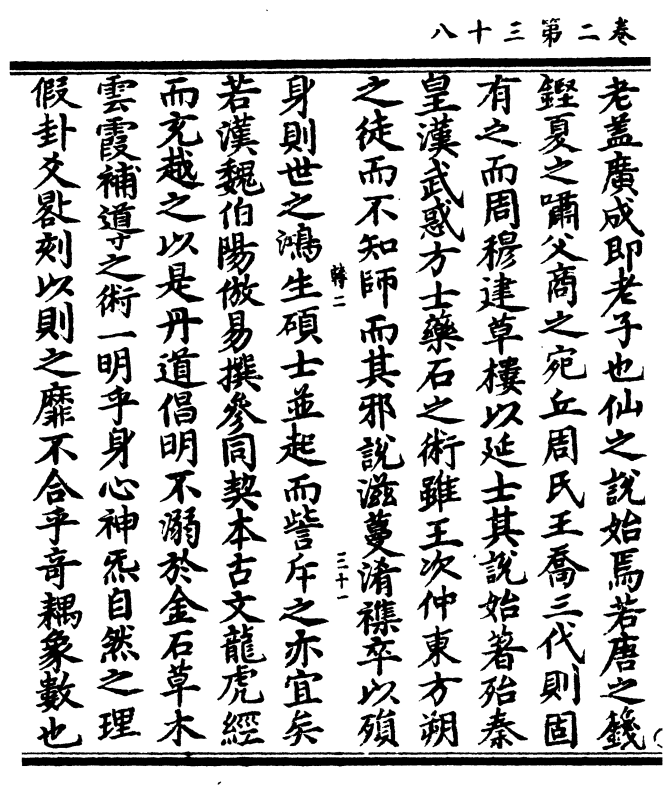 卷二第三十八
老盖廣成即老子也仙之說始焉若唐之籛
鏗夏之嘯父商之宛丘周氏王喬三代則固
有之而周穆建草樓以延士其說始著殆秦
皇漢武惑方士藥石之術雖王次仲東方朔
之徒而不知師而其邪說滋蔓淆襍卒以殞
轉二
三十一
身則世之鴻生碩士並起而訾斥之亦宜矣
若漢魏伯陽倣易撰參同契本古文龍虎經
而充越之以是丹道倡明不溺於金石草木
雲霞補導之術一明乎身心神炁自然之理
假卦爻晷刻以則之靡不合乎竒耦象數也